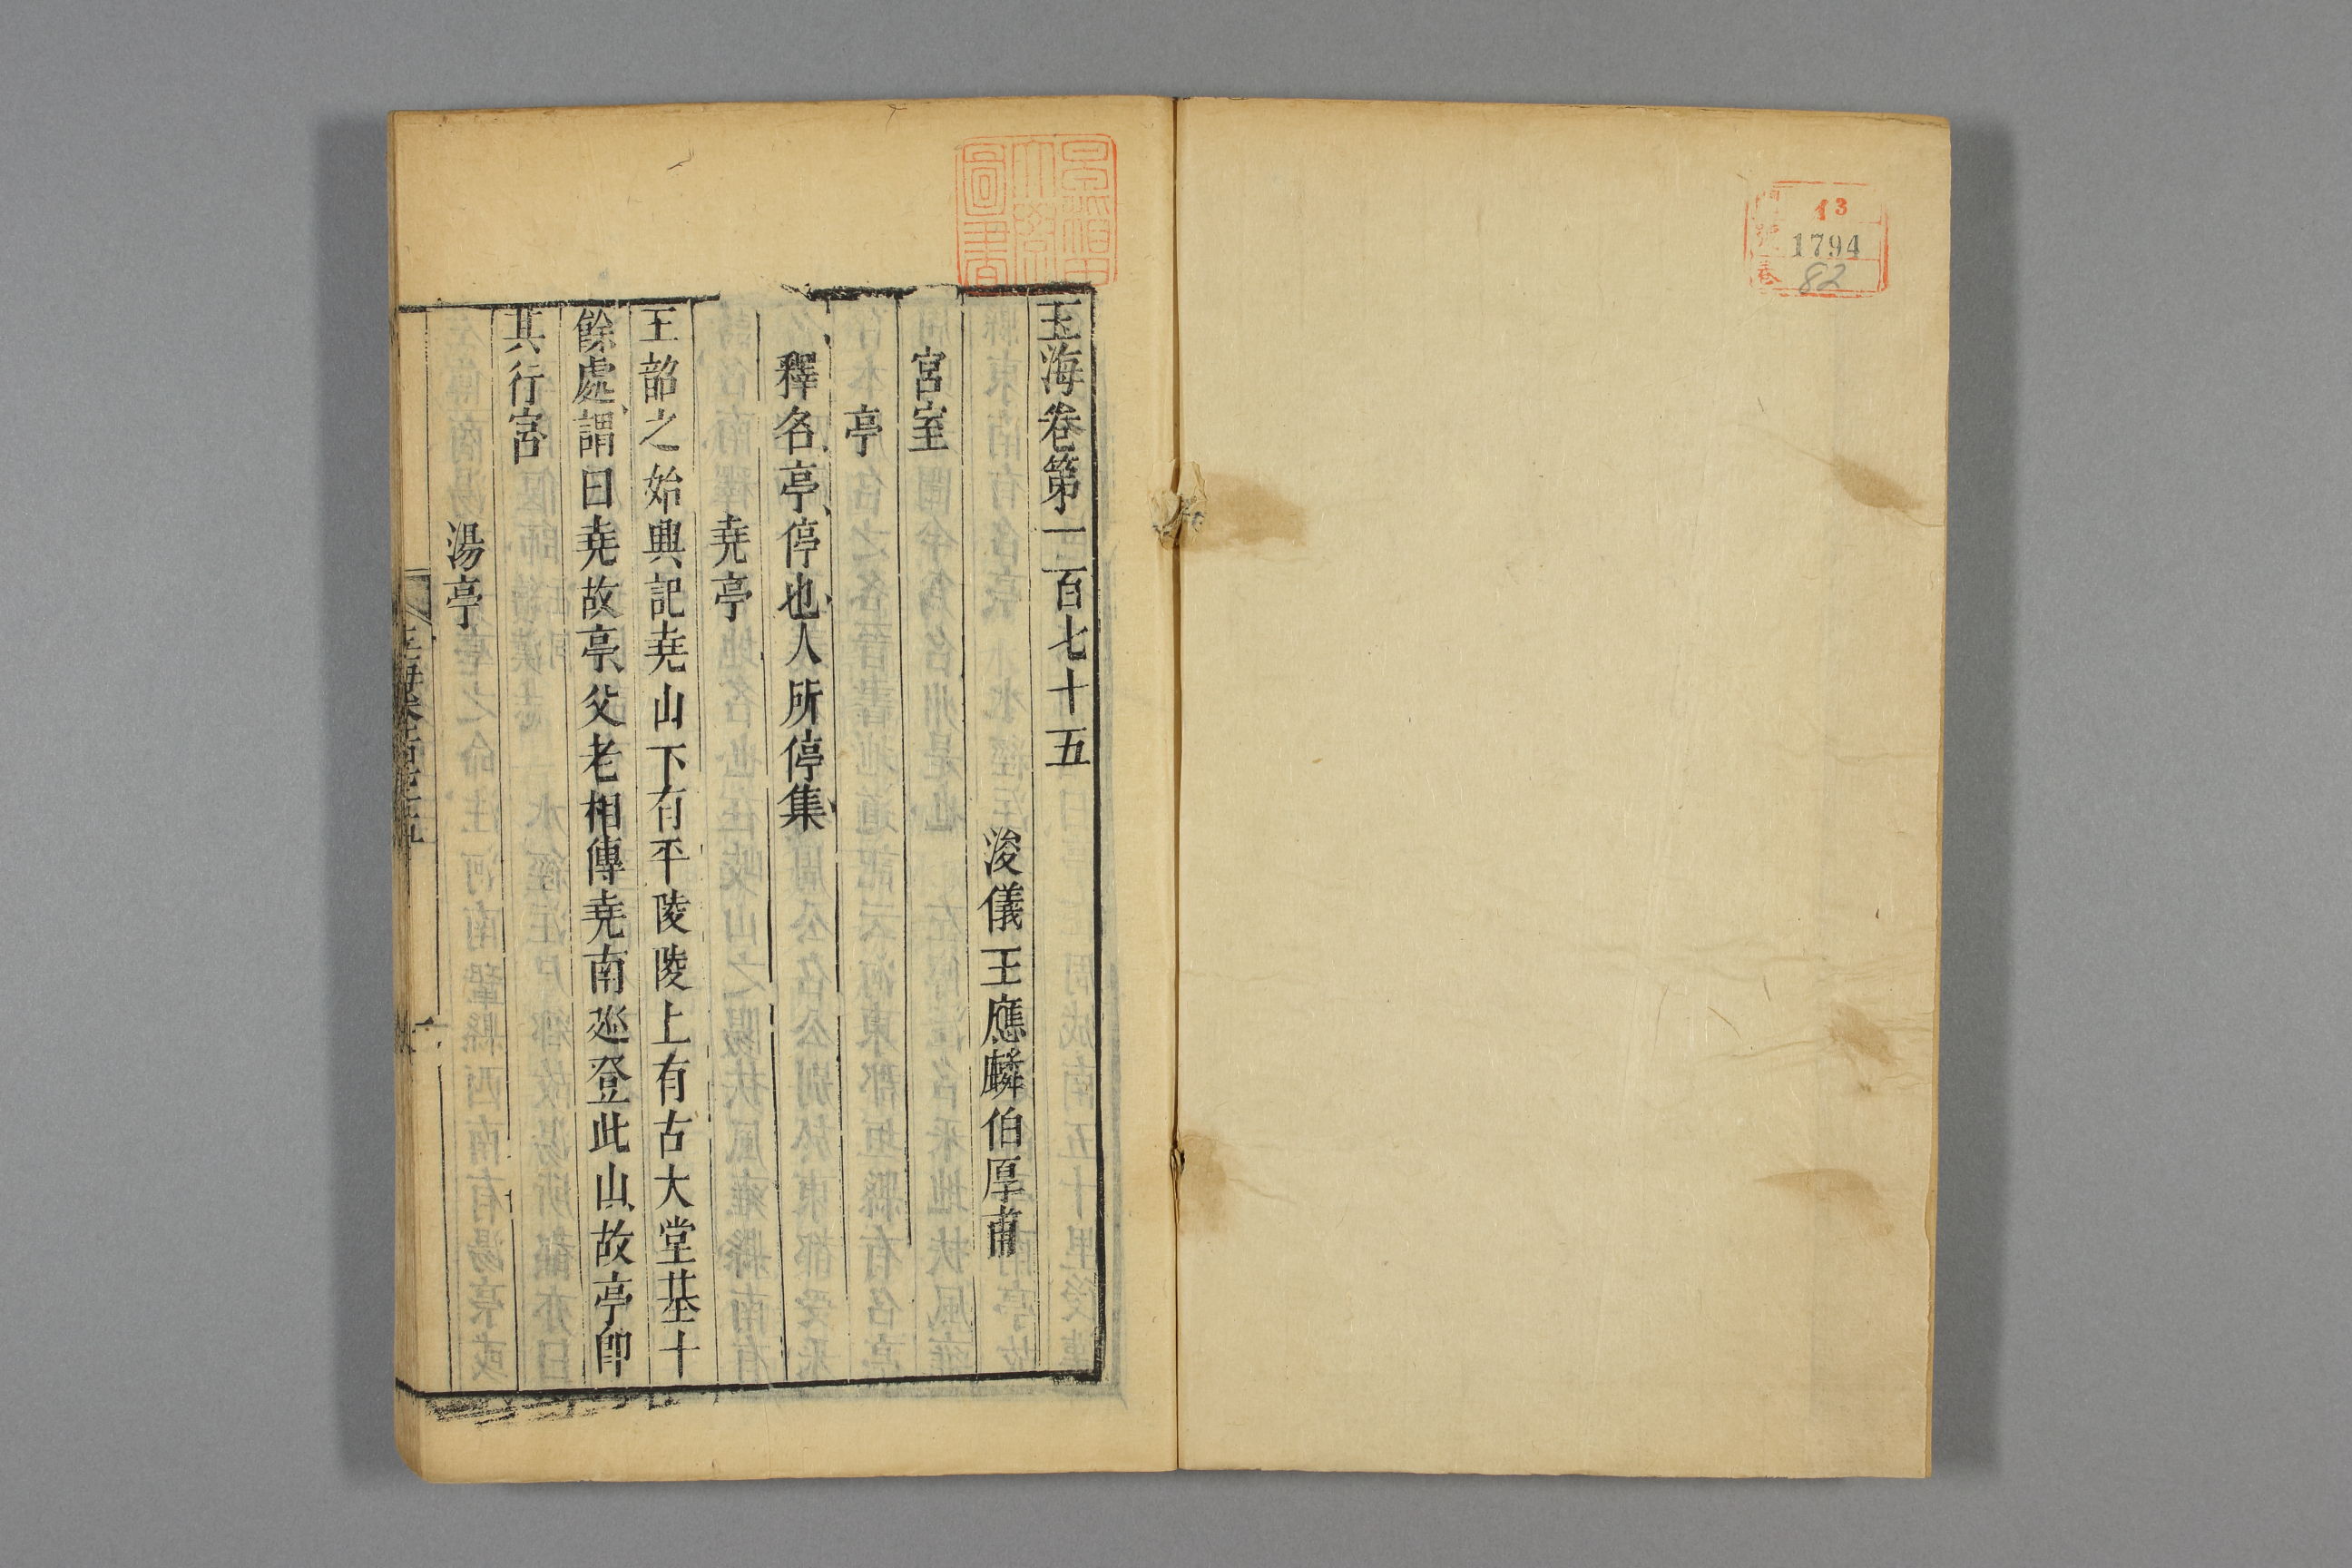 13
1794
82
玉海卷第一百七十五
浚儀王應麟伯厚甫
宮室
亭
釋名亭停也人所停集
堯亭
王韶之始興記堯山下有平陵陵上有古大堂基十
餘處謂曰堯故亭父老相傳堯南巡登此山故亭卽
其行宮
湯亭